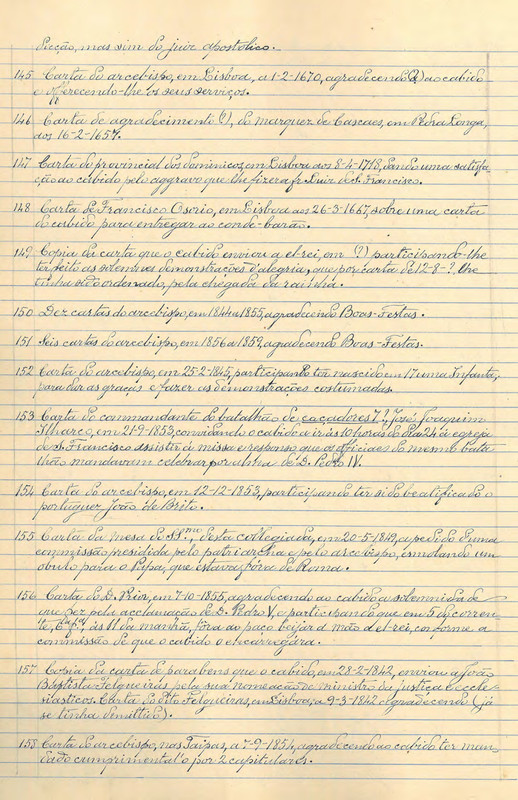 dicção, mas sim do juiz apostolico.
145 Carta do arcebispo, em Lisboa, a 1-2-1670, agradecendo (?) ao cabido
e offerecendo-lhe os seus serviços.
146 Carta de agradecimento (?), do marquez de Cascaes, em Pedra Longa,
aos 16-2-1657.
147 Carta do provincial dos dominicos, em Lisboa aos 8-4-1718, dando uma satisfa-
ção ao cabido pelo aggravo que lhe fizera fr. Luiz de S. Francisco.
148 Carta de Francisco Osorio, em Lisboa aos 26-3-1667, sobre uma carta
do cabido para entregar ao conde-barão.
149 Copia da carta que o cabido enviou a el-rei, em (?) participando-lhe
ter feito as solemnes demonstrações d'alegria, que por carta de 12-8-?, lhe
tinha sido ordenado, pela chegada da rainha.
150 Dez cartas do arcebispo, em 1844 a 1855, agradecendo Boas-Festas.
151 Seis cartas do arcebispo, em 1856 a 1859, agradecendo Boas-Festas.
152 Carta do arcebispo, em 25-2-1845, participando ter nascido em 17 uma Infanta,
para dar as graças e fazer as demonstrações costumadas.
153 Carta do commandante do batalhão de caçadores 7?, José Joaquim
Ilharco, em 21-9-1853, convidando o cabido a ir ás 10 horas do dia 24 á egreja
de S. Francisco assistir á missa e responso que os officiaes do mesmo bata-
lhão mandavam celebrar por alma de D. Pedro IV.
154 Carta do arcebispo, em 12-12-1853, participando ter sido beatificado o
portuguez João de Brito.
155 Carta da mesa do SS.mo, desta collegiada, em 20-5-1849, a pedido d'uma
commissão presidida pelo patriarcha e pelo arcebispo, esmolando um
obulo para o Papa, que estava fóra de Roma.
156 Carta do D. Prior, em 7-10-1855, agradecendo ao cabido a solemnidade
que fez pela acclamação de D. Pedro V, e participando que em 5 do corren-
te, ás 11 da manhã, fôra ao paço beijar a mão d'el-rei, conforme a
commissão de que o cabido o encarregára.
157 Copia da carta de parabens que o cabido, em 28-2-1842, enviou a João
Baptista Felgueiras pela sua nomeação de ministro da justiça e eccle-
siasticos. Carta do dito Felgueiras, em Lisboa, a 9-3-1842 agradecendo (já
se tinha demittido).
158 Carta do arcebispo, nas Taipas, a 7-9-1854, agradecendo ao cabido ter man-
dado cumprimental'o por 2 capitulares.